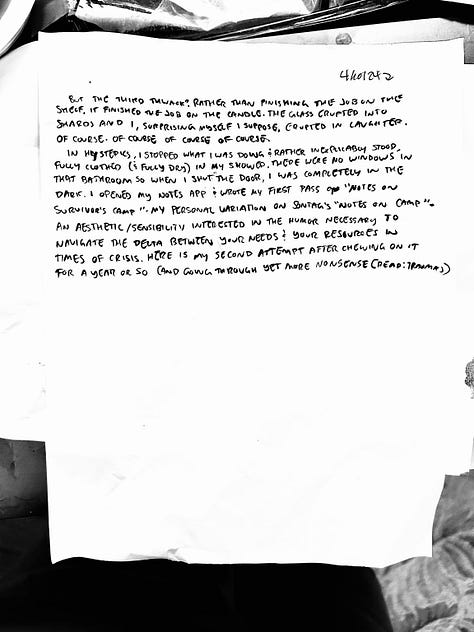 4/20/24 2
BUT THE THIRD THWACK? RATHER THAN FINISHING THE JOB ON THE
SHELF, IT FINISHED THE JOB ON THE CANDLE. THE GLASS ERUPTED INTO
SHARDS AND I, SURPRISING MYSELF I SUPPOSE, ERUPTED IN LAUGHTER.
OF COURSE. OF COURSE OF COURSE OF COURSE.
IN HYSTERICS, I STOPPED WHAT I WAS DOING & RATHER INEXPLICABLY STOOD,
FULLY CLOTHED (& FULLY DRY) IN MY SHOWER. THERE WERE NO WINDOWS IN
THAT BATHROOM SO WHEN I SHUT THE DOOR, I WAS COMPLETELY IN THE
DARK. I OPENED MY NOTES APP & WROTE MY FIRST PASS @ "NOTES ON
SURVIVOR'S CAMP". MY PERSONAL VARIATION ON SONTAG'S "NOTES ON CAMP".
AN AESTHETIC/SENSIBILITY INTERESTED IN THE HUMOR NECESSARY TO
NAVIGATE THE DELTA BETWEEN YOUR NEEDS & YOUR RESOURCES IN
TIMES OF CRISIS. HERE IS MY SECOND ATTEMPT AFTER CHEWING ON IT
FOR A YEAR OR SO (AND GOING THROUGH YET MORE NONSENSE (READ: TRAUMAS)